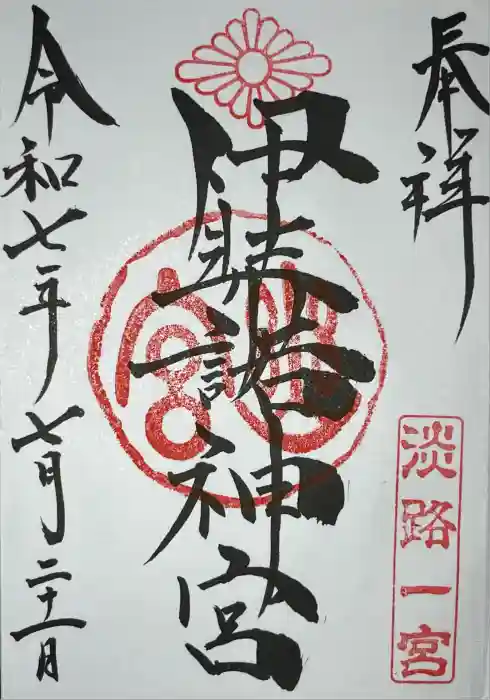 奉祥
淡路一宮
伊弉諾神宮
幽宮
令和七年七月二十一日